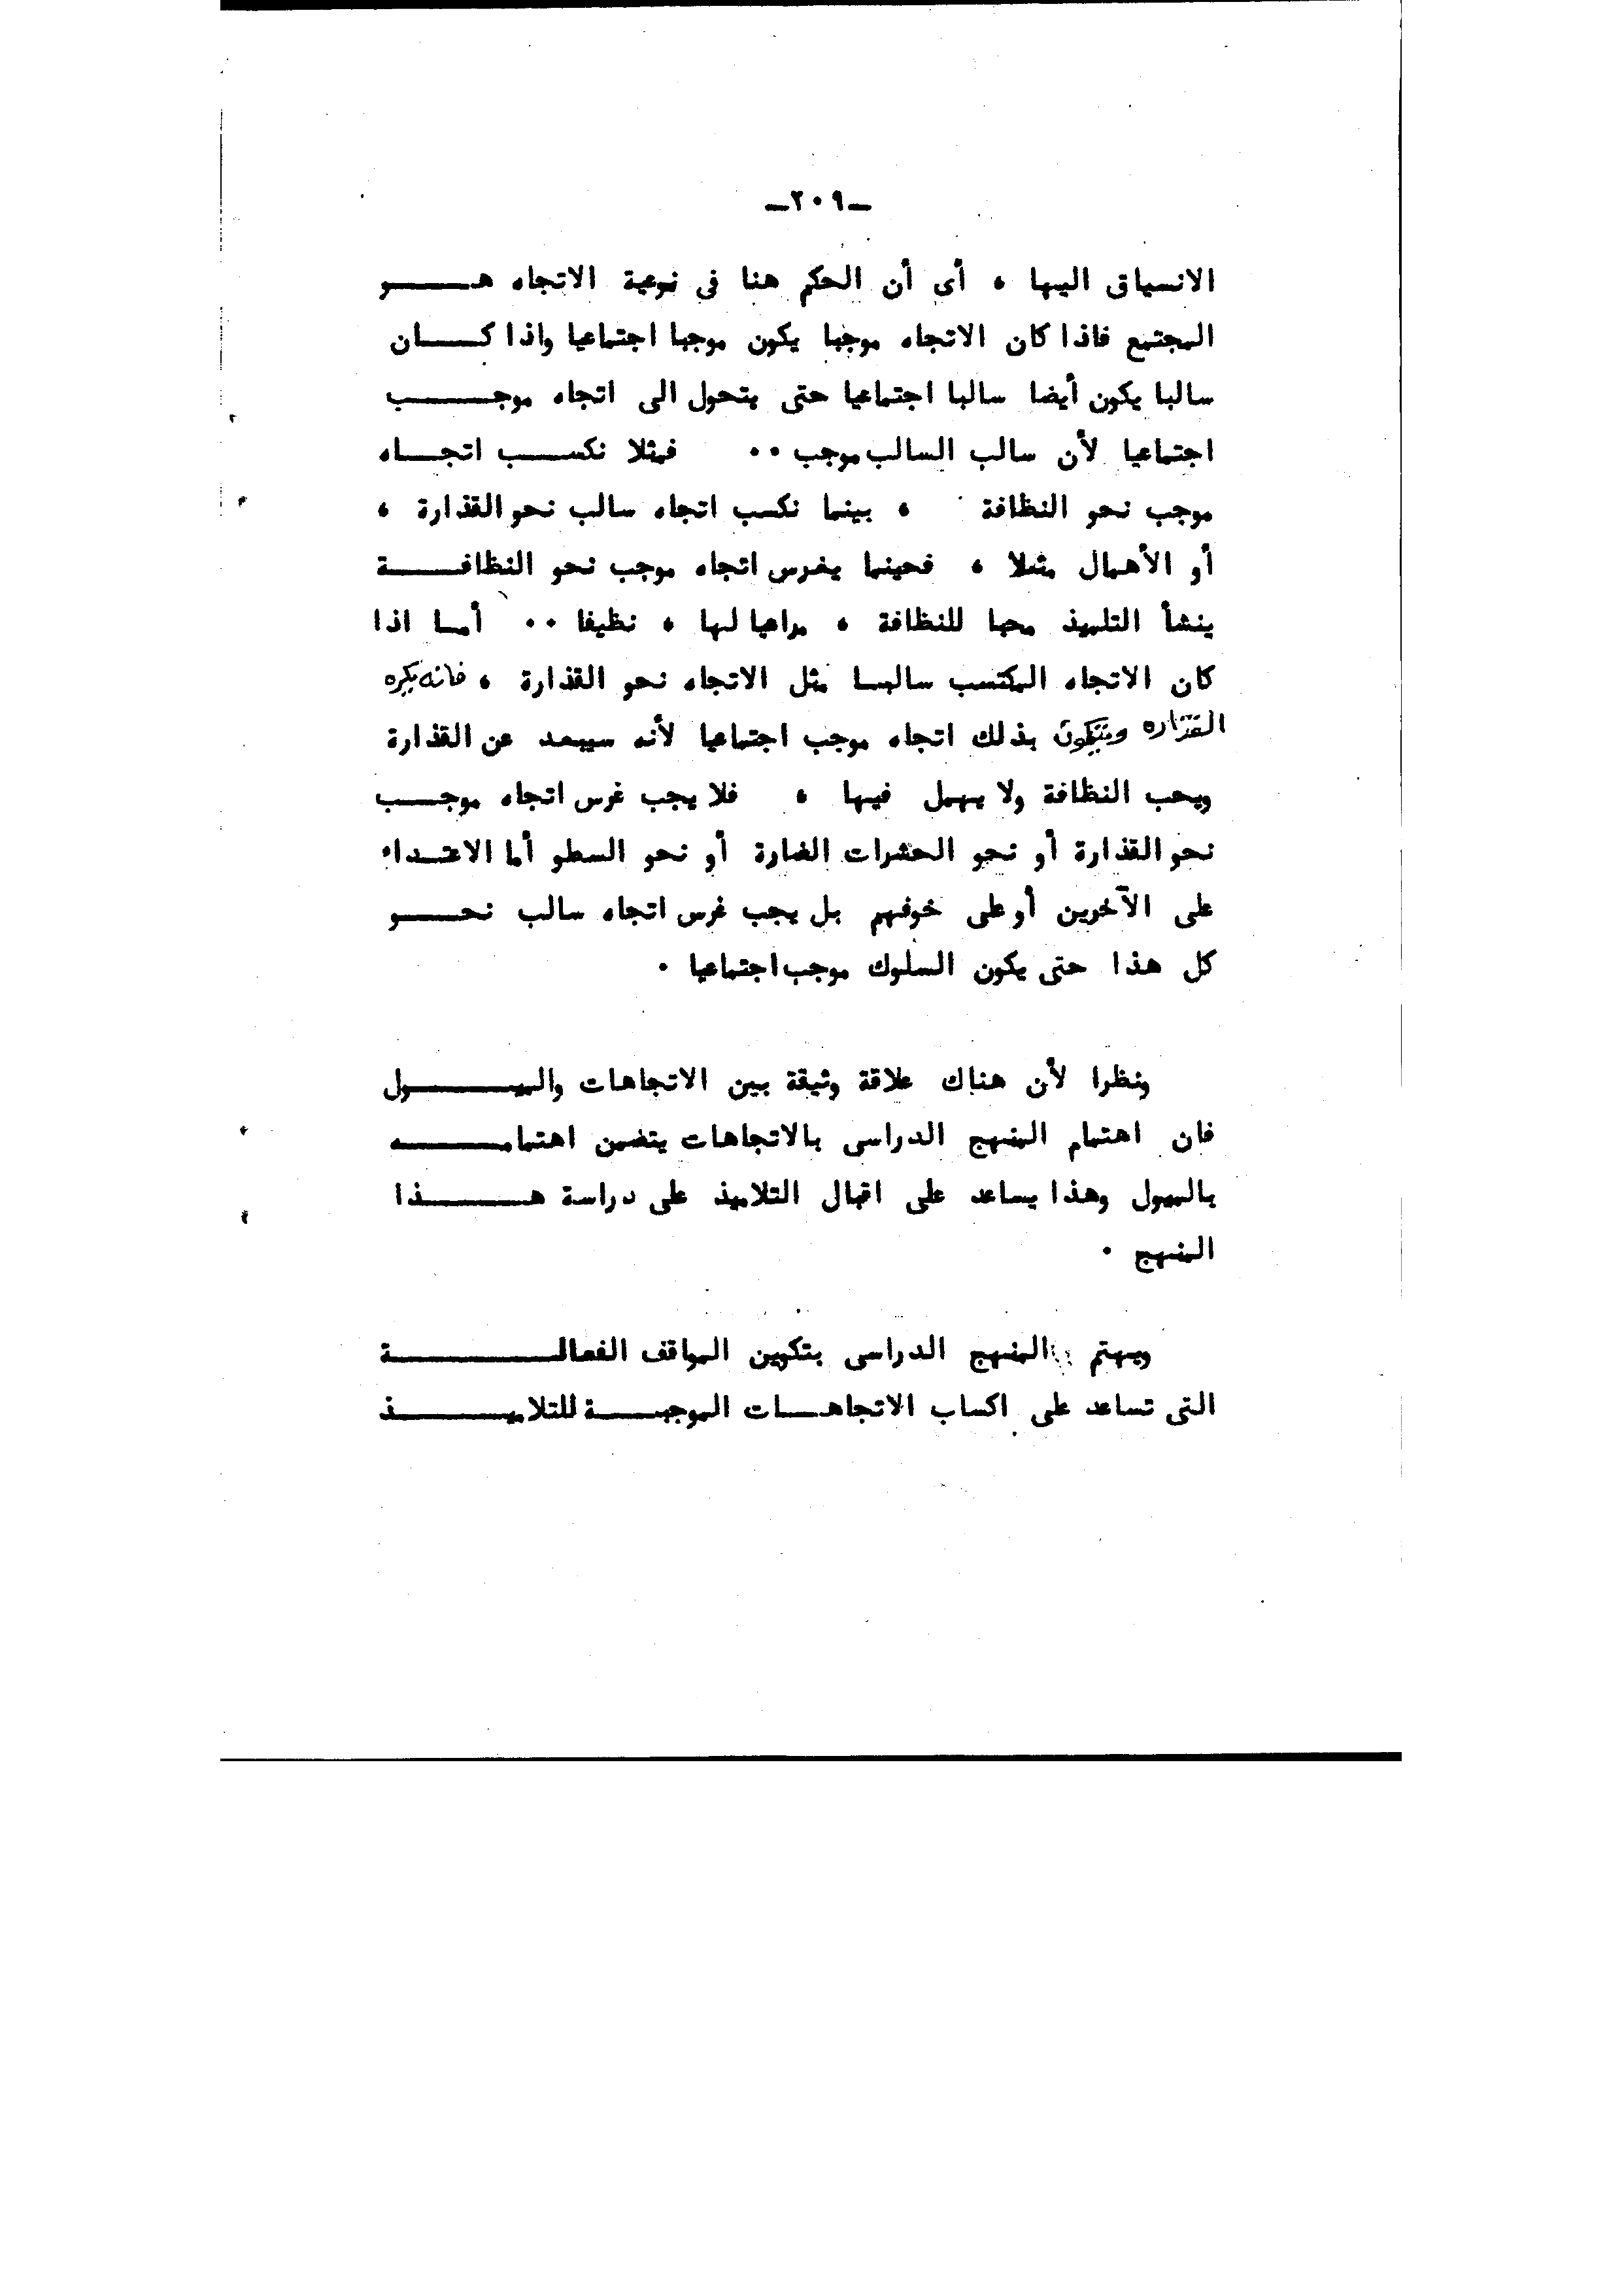 -٢٠٩-
الانسياق اليها ، أى أن الحكم هنا فى نوعية الاتجاه هـــو
المجتمع فاذا كان الاتجاه موجبا يكون موجبا اجتماعيا واذا كـــان
سالبا يكون أيضا سالبا اجتماعيا حتى يتحول الى اتجاه موجـــب
اجتماعيا لأن سالب السالب موجب ٠٠ فمثلا نكســـب اتجـــاه
موجب نحو النظافة ، بينما نكسب اتجاه سالب نحو القذارة ،
أو الأهمال مثلا ، فحينما يغرس اتجاه موجب نحو النظافـــة
ينشأ التلميذ محبا للنظافة ، مراعيا لها ، نظيفا ٠٠ أمـا اذا
كان الاتجاه المكتسب سالبـا مثل الاتجاه نحو القذارة ، فانه يكره
القذاره ويتكون بذلك اتجاه موجب اجتماعيا لأنه سيبعد عن القذارة
ويحب النظافة ولا يهمل فيها ، فلا يجب غرس اتجاه موجـــب
نحو القذارة أو نحو الحشرات الضارة أو نحو السطو أما الاعتـداء
على الآخرين أو على خوفهم بل يجب غرس اتجاه سالب نحـــو
كل هذا حتى يكون السلوك موجب اجتماعيا ٠
ونظرا لأن هناك علاقة وثيقة بين الاتجاهات والميـــول
فان اهتمام المنهج الدراسى بالاتجاهات يتضمن اهتمامـــه
بالميول وهذا يساعد على اقبال التلاميذ على دراسة هـــذا
المنهج ٠
ويهتم المنهج الدراسى بتكوين المواقف الفعالـــة
التى تساعد على اكساب الاتجاهـــات الموجبـــة للتلاميـــذ